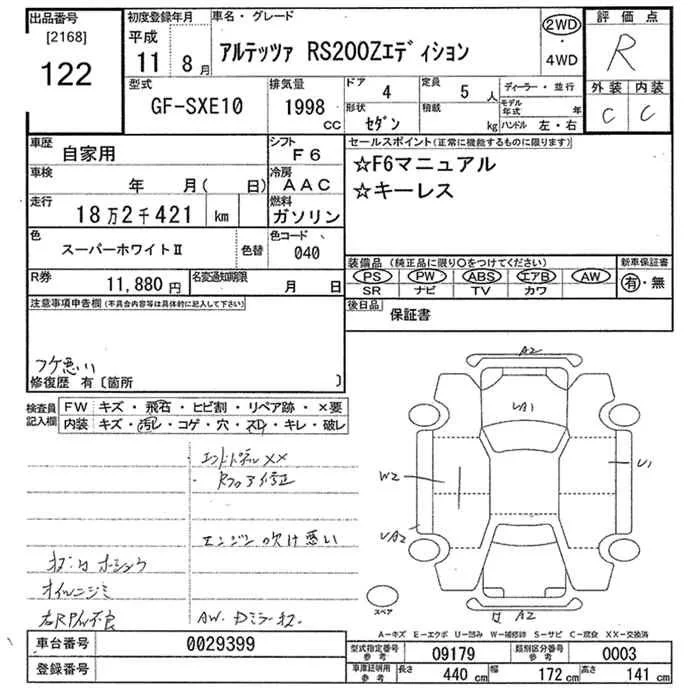 出品番号 初度登録年月 車名・グレード 2WD 評価点
[2168] 平成 ・ R
122 11 8月 アルテッツァ RS200Zエディション 4WD
外装 内装
C C
型式 排気量 ドア 4 定員 5人 ディーラー・並行
GF-SXE10 1998 CC 形状 セダン 積載 kg モデル年式 年
ハンドル 左・右
車歴 自家用 シフト F6 セールスポイント(正常に機能するものに限ります)
車検 年 月( 日) 冷房 AAC ☆F6マニュアル
走行 18万2千421 km 燃料 ガソリン ☆キーレス
色 スーパーホワイトⅡ 色替 色コード 040
装備品(純正品に限り○をつけてください) 新車保証書
R券 11,880円 名変通知期限 月 日 PS PW ABS エアB AW 有・無
SR ナビ TV カワ
注意事項申告欄(不具合内容等は具体的に記入して下さい) 後日品 保証書
フケ悪い
修復歴 有〔箇所 〕
検査員記入欄 FW キズ・飛石・ヒビ割・リペア跡・×要
内装 キズ・汚レ・コゲ・穴・スレ・キレ・破レ
A2
UA1
W2 U1
UA2
A2
スペア
エンドパネル××
Rフロア修正
エンジン吹け悪い
オイルニジミ
A-キズ E-エクボ U-凹み W-補修跡 S-サビ C-腐食 XX-交換済
車台番号 0029399 型式指定番号 参考 09179 類別区分番号 参考 0003
登録番号 車庫証明用 参考 長さ 440cm 幅 172cm 高さ 141cm